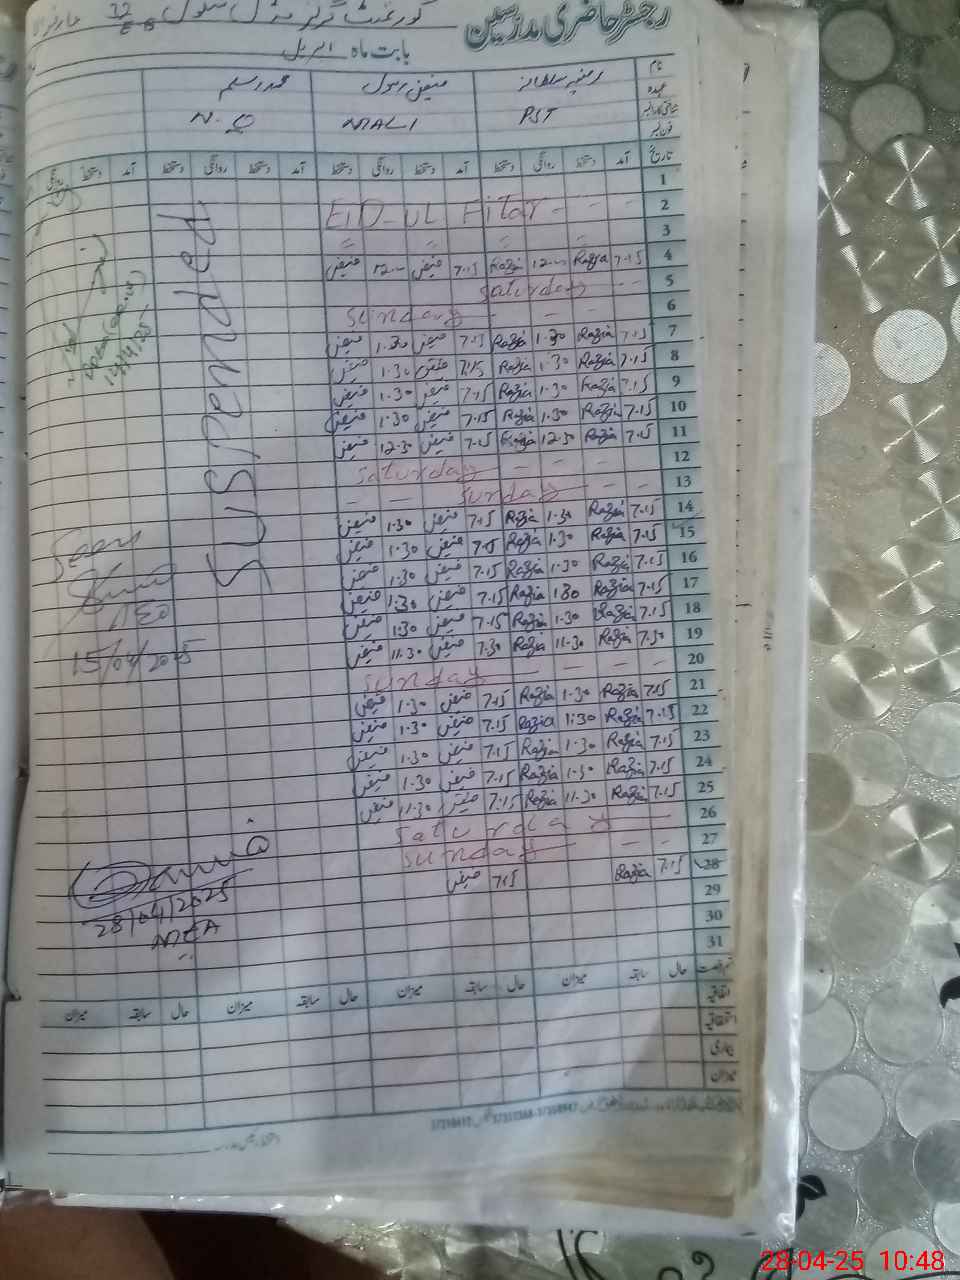 رجسٹر حاضری مدرسین گورنمنٹ گرلز مڈل سکول 32/EB
بابت ماہ اپریل
نام رضیہ سلطانہ فیض رسول محمد وسیم
عہدہ PST MALI N.Q
تاریخ آمد دستخط روانگی دستخط آمد دستخط روانگی دستخط آمد دستخط روانگی دستخط آمد دستخط روانگی
1
2 EID-UL Fitar - - -
3
4 7.15 Razia 12.00 Razia 7.15 فیض 12.00 فیض
5 - - Saturday
6 - - - Sunday
7 7.15 Razia 1.30 Razia 7.15 فیض 1.30 فیض
8 7.15 Razia 1.30 Razia 7.15 فیض 1.30 فیض
9 7.15 Razia 1.30 Razia 7.15 فیض 1.30 فیض
10 7.15 Razia 1.30 Razia 7.15 فیض 1.30 فیض
11 7.15 Razia 12.30 Razia 7.15 فیض 12.30 فیض
12 Saturday - - - -
13 - - Sunday - -
14 7.15 Razia 1.30 Razia 7.15 فیض 1.30 فیض
15 7.15 Razia 1.30 Razia 7.15 فیض 1.30 فیض
16 7.15 Razia 1.30 Razia 7.15 فیض 1.30 فیض
17 7.15 Razia 1.30 Razia 7.15 فیض 1.30 فیض
18 7.15 Razia 1.30 Razia 7.15 فیض 1.30 فیض
19 7.30 Razia 11.30 Razia 7.30 فیض 11.30 فیض
20 Sunday - - - -
21 7.15 Razia 1.30 Razia 7.15 فیض 1.30 فیض
22 7.15 Razia 1.30 Razia 7.15 فیض 1.30 فیض
23 7.15 Razia 1.30 Razia 7.15 فیض 1.30 فیض
24 7.15 Razia 1.30 Razia 7.15 فیض 1.30 فیض
25 7.15 Razia 11.30 Razia 7.15 فیض 11.30 فیض
26 Saturday
27 Sunday - -
28 7.15 Razia 7.15 فیض
29
30
31
15/04/2025
28/04/2025
MEA
حال سابقہ میزان حال سابقہ میزان حال سابقہ میزان حال سابقہ میزان
اتفاقیہ
استحقاقیہ
بیماری
میزان
28-04-25 10:48